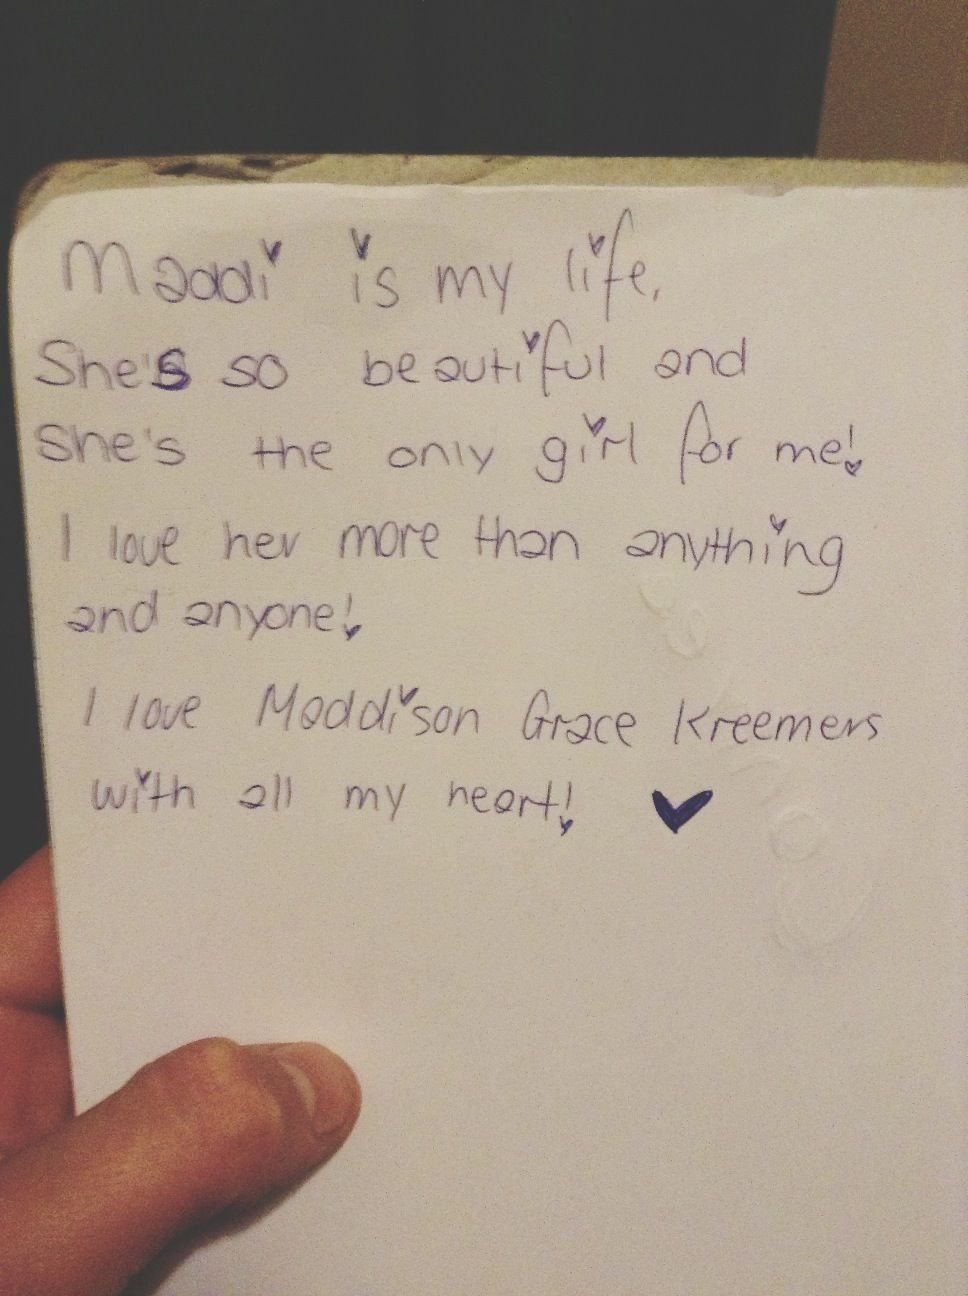 Maddi is my life,
She's so beautiful and
She's the only girl for me!
I love her more than anything
and anyone!
I love Maddison Grace Kreemers
with all my heart!